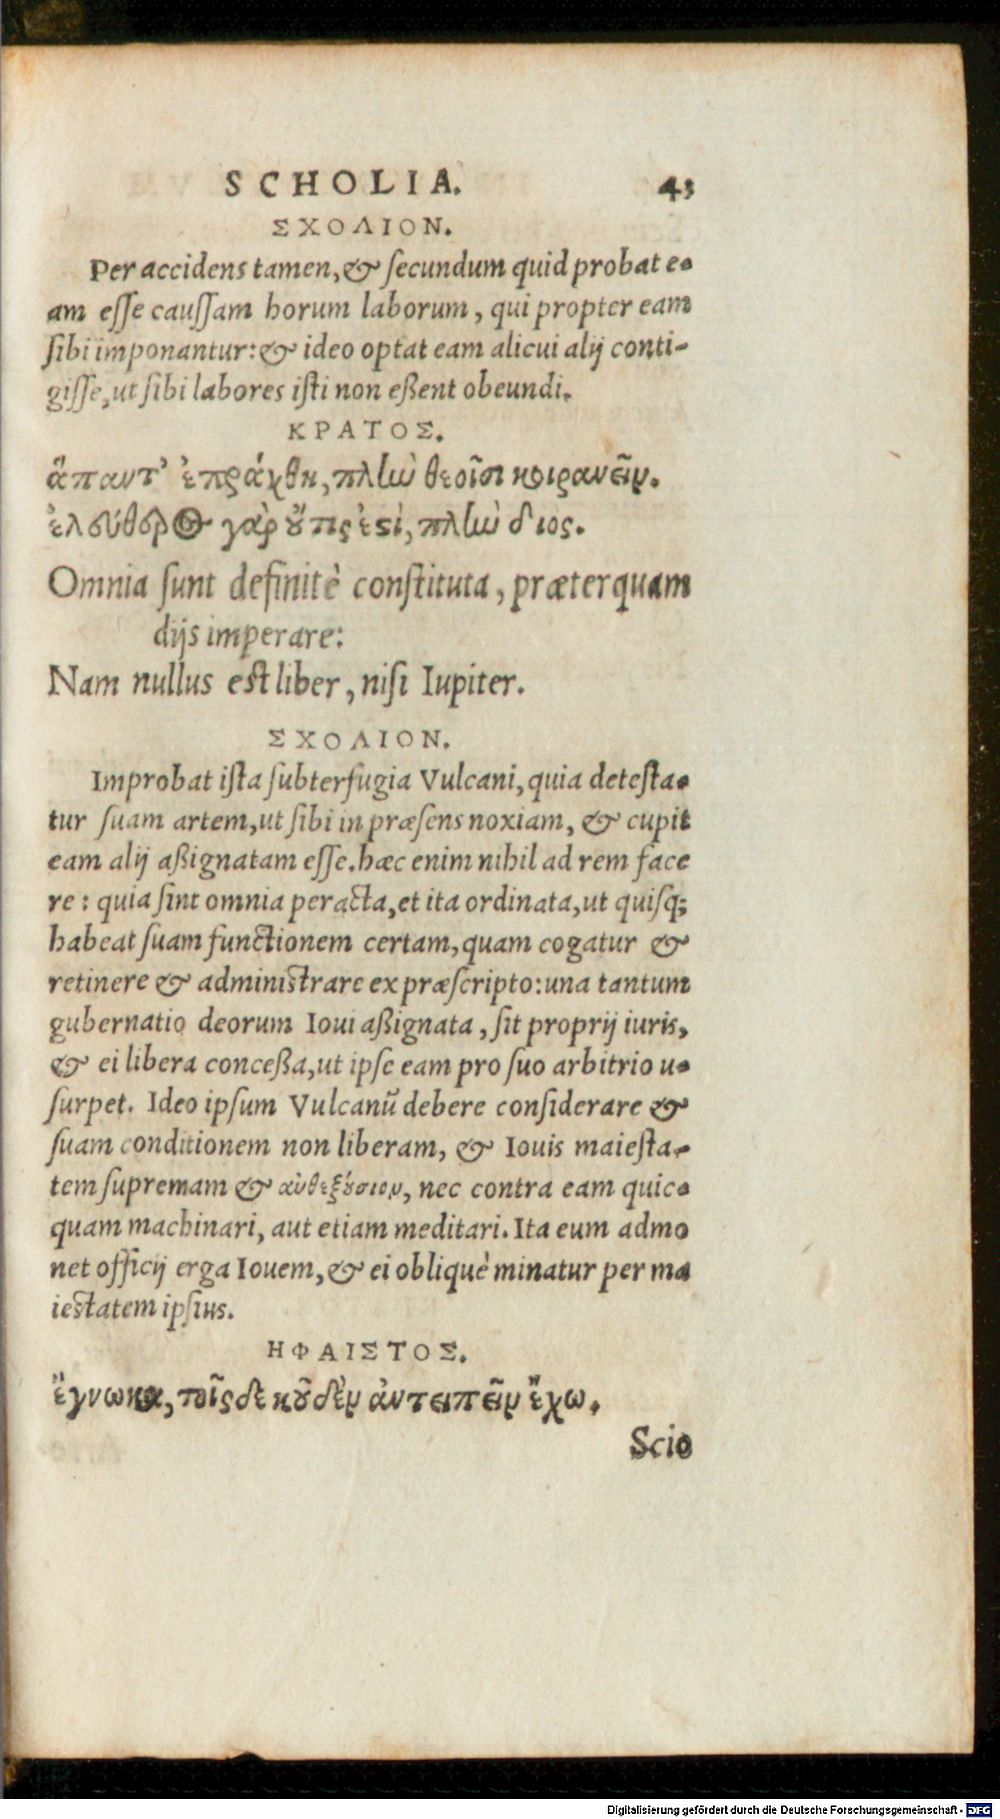 SCHOLIA. 43
ΣΧΟΛΙΟΝ.
Per accidens tamen, & ſecundum quid probat e-
am eſſe cauſſam horum laborum, qui propter eam
ſibi imponantur: & ideo optat eam alicui alij conti-
giſſe, ut ſibi labores iſti non eßent obeundi.
ΚΡΑΤΟΣ.
ἅπαντ' ἐπράχθη, πλὴν θεοῖσι κοιρανεῖν.
ἐλεύθερος γὰρ οὔτις ἐστὶ, πλὴν διος.
Omnia ſunt definitè conſtituta, præterquam
dijs imperare:
Nam nullus est liber, niſi Iupiter.
ΣΧΟΛΙΟΝ.
Improbat iſta ſubterfugia Vulcani, quia deteſta-
tur ſuam artem, ut ſibi in præſens noxiam, & cupit
eam alij aßignatam eſſe. hæc enim nihil ad rem face
re: quia ſint omnia peracta, et ita ordinata, ut quiſq;
habeat ſuam functionem certam, quam cogatur &
retinere & administrare ex præſcripto: una tantum
gubernatio deorum Ioui aßignata, ſit proprij iuris,
& ei libera conceßa, ut ipſe eam pro ſuo arbitrio u-
ſurpet. Ideo ipſum Vulcanū debere conſiderare &
ſuam conditionem non liberam, & Iouis maieſta-
tem ſupremam & αὐθεξούσιον, nec contra eam quic-
quam machinari, aut etiam meditari. Ita eum admo
net officij erga Iouem, & ei obliquè minatur per ma
iestatem ipſius.
ΗΦΑΙΣΤΟΣ.
ἔγνωκα, τοῖς δε κοὐδὲν ἀντειπεῖν ἔχω.
Scio
Digitalisierung gefördert durch die Deutsche Forschungsgemeinschaft - DFG